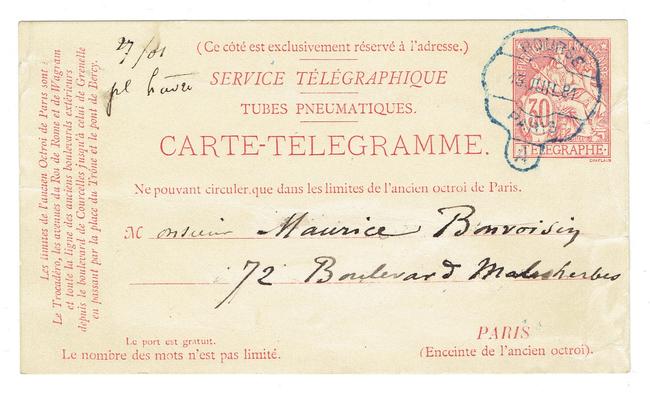 Les limites de l'ancien Octroi de Paris sont :
Le Trocadéro, les avenues du Roi de Rome et de Wagram
et toute la ligne des anciens boulevards extérieurs
depuis le boulevard de Courcelles jusqu'à celui de Grenelle
en passant par la place du Trône et le pont de Bercy.
(Ce côté est exclusivement réservé à l'adresse.)
SERVICE TÉLÉGRAPHIQUE
TUBES PNEUMATIQUES.
CARTE-TÉLÉGRAMME.
Ne pouvant circuler que dans les limites de l'ancien octroi de Paris.
BOURSE
JUIL 81
PARIS
30
TÉLÉGRAPHE
CHAPLAIN
Monsieur Maurice Bonvoisin
72 Boulevard Malesherbes
PARIS
(Enceinte de l'ancien octroi).
Le port est gratuit.
Le nombre des mots n'est pas limité.